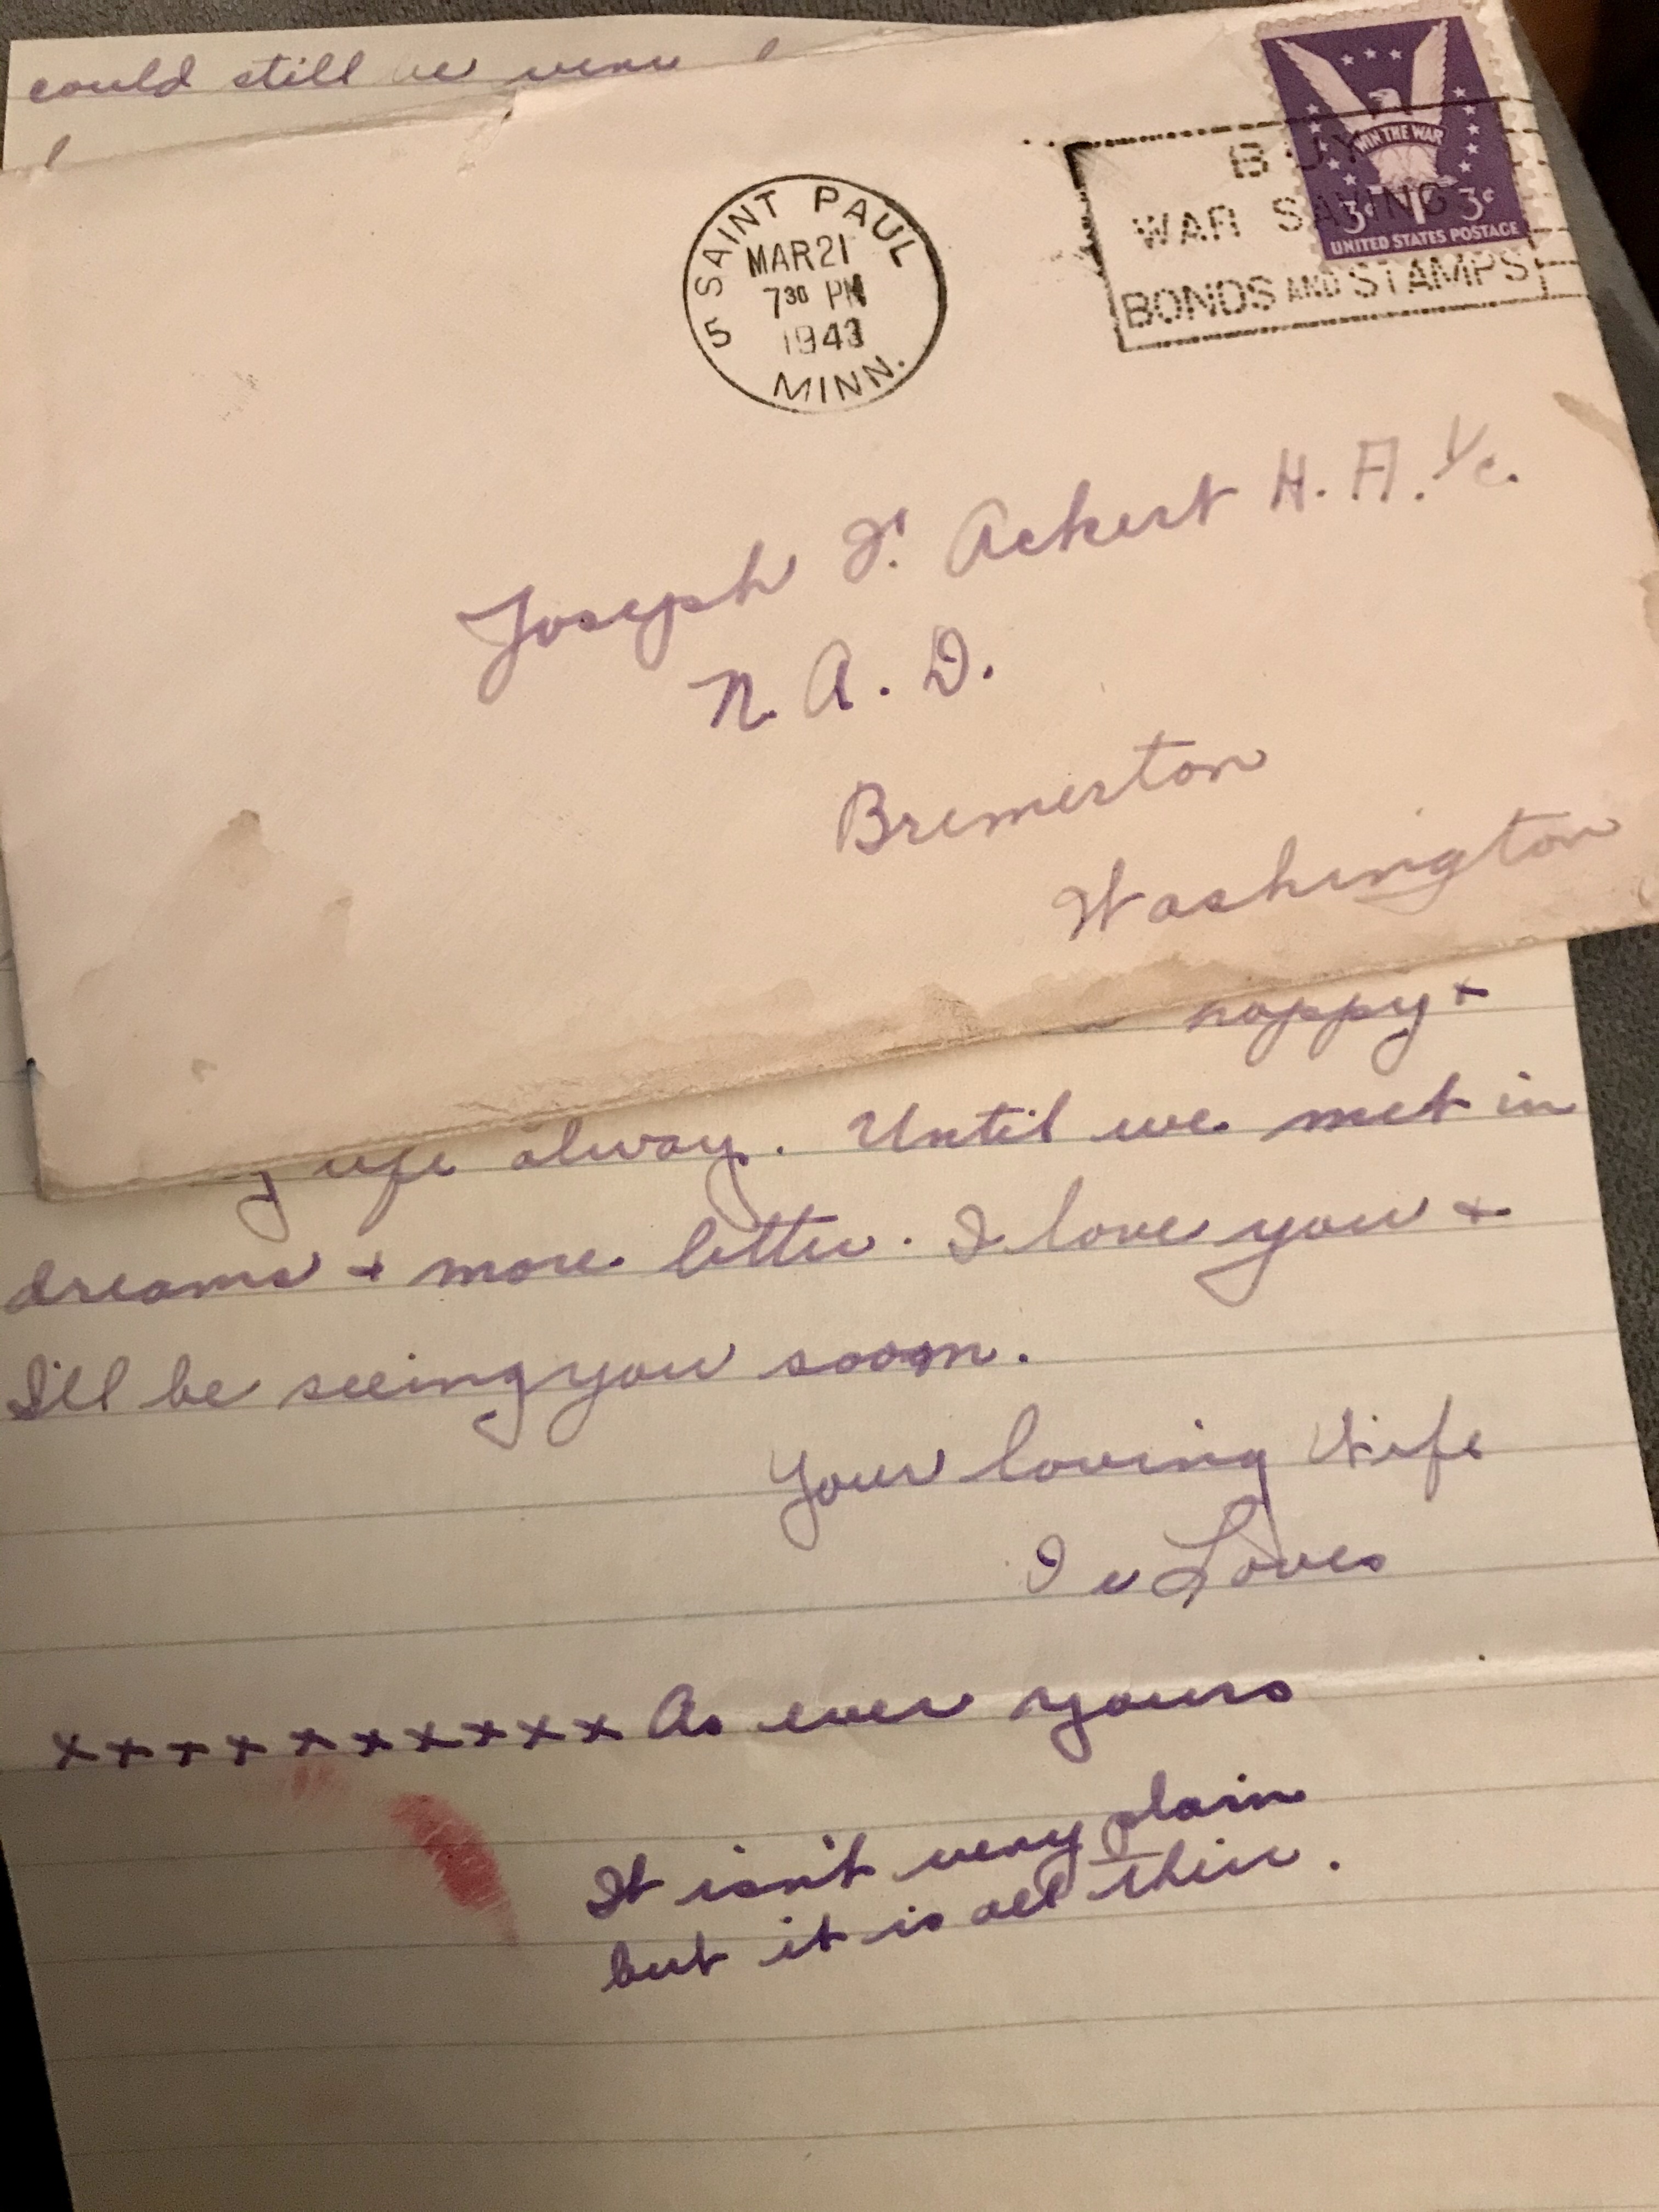 could still be
SAINT PAUL
MAR 21
7 30 PM
1943
5
MINN.
BUY
WAR SAVINGS
BONDS AND STAMPS
WIN THE WAR
3¢ 3¢
UNITED STATES POSTAGE
Joseph J. Ackert H.A. 1/c.
N. A. D.
Bremerton
Washington
happy +
life alway. Until we met in
dreams + more letter. I love you +
I'll be seeing you soon.
Your loving Wife
Loves
xxxxxxxxxx As ever yours
It isn't very plain
but it is all thir.